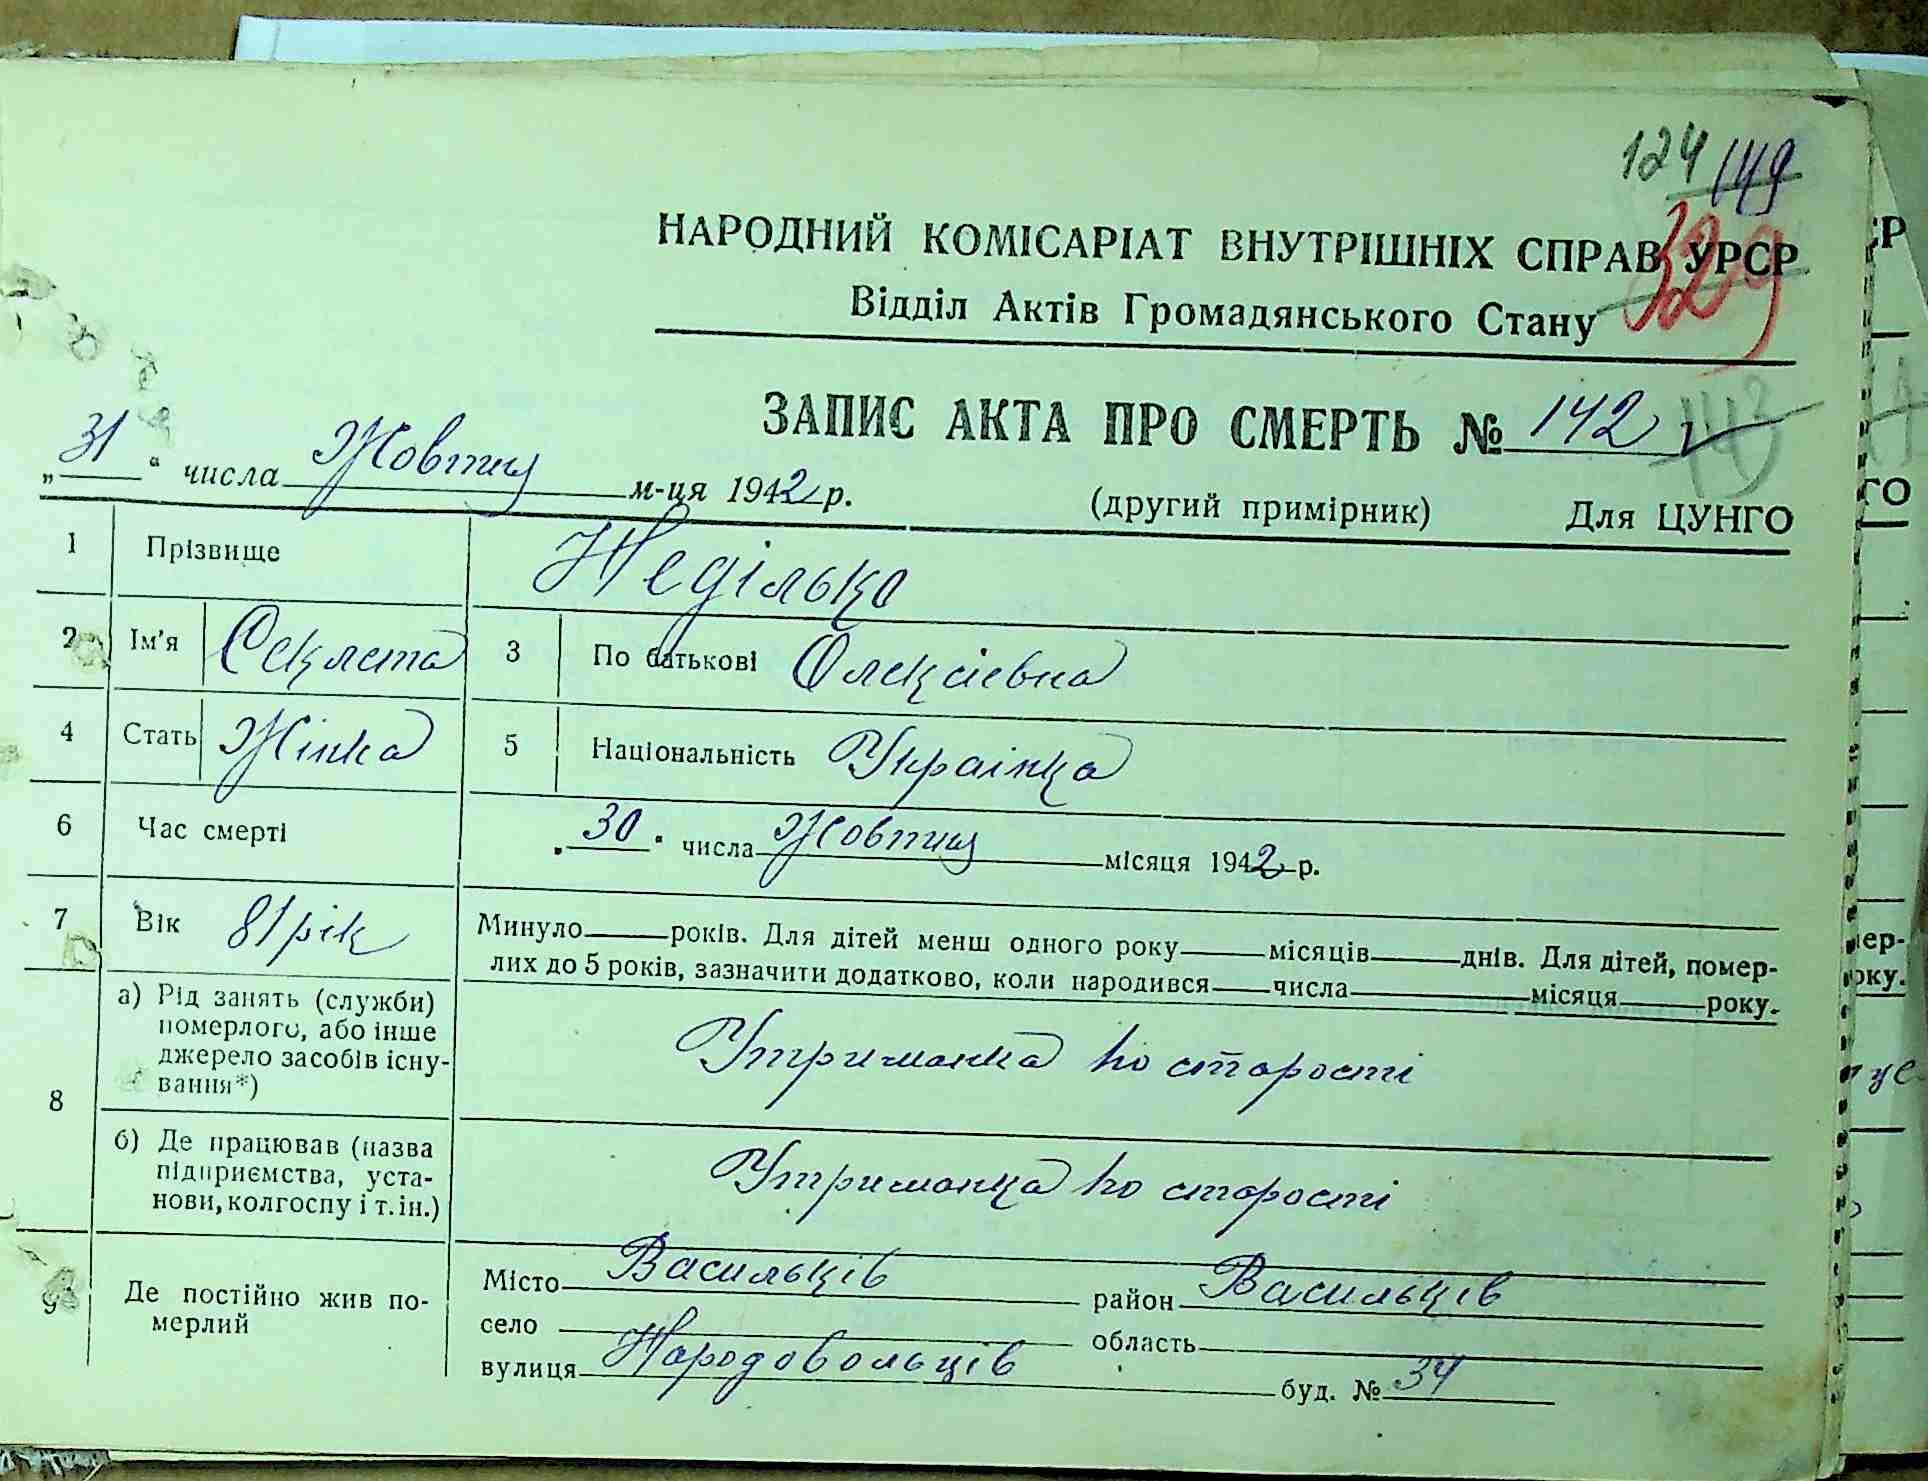 124 149
НАРОДНИЙ КОМІСАРІАТ ВНУТРІШНІХ СПРАВ УРСР
329
Відділ Актів Громадянського Стану
ЗАПИС АКТА ПРО СМЕРТЬ № 142
143
„31“ числа Жовтня м-ця 1942 р.
(другий примірник) Для ЦУНГО
1 Прізвище Неділько
2 Ім'я Секлета 3 По батькові Олексіевна
4 Стать Жінка 5 Національність Українка
6 Час смерті „30“ числа Жовтня місяця 1942 р.
7 Вік 81 рік Минуло — років. Для дітей менш одного року — місяців — днів. Для дітей, помер-
лих до 5 років, зазначити додатково, коли народився — числа — місяця — року.
8 а) Рід занять (служби)
померлого, або інше
джерело засобів існу-
вання*)
Утриманка по старости
б) Де працював (назва
підприємства, уста-
нови, колгоспу і т. ін.)
Утриманка по старості
9 Де постійно жив по-
мерлий
Місто Васильків район Васильків
село — область —
вулиця Народовольців буд. № 34